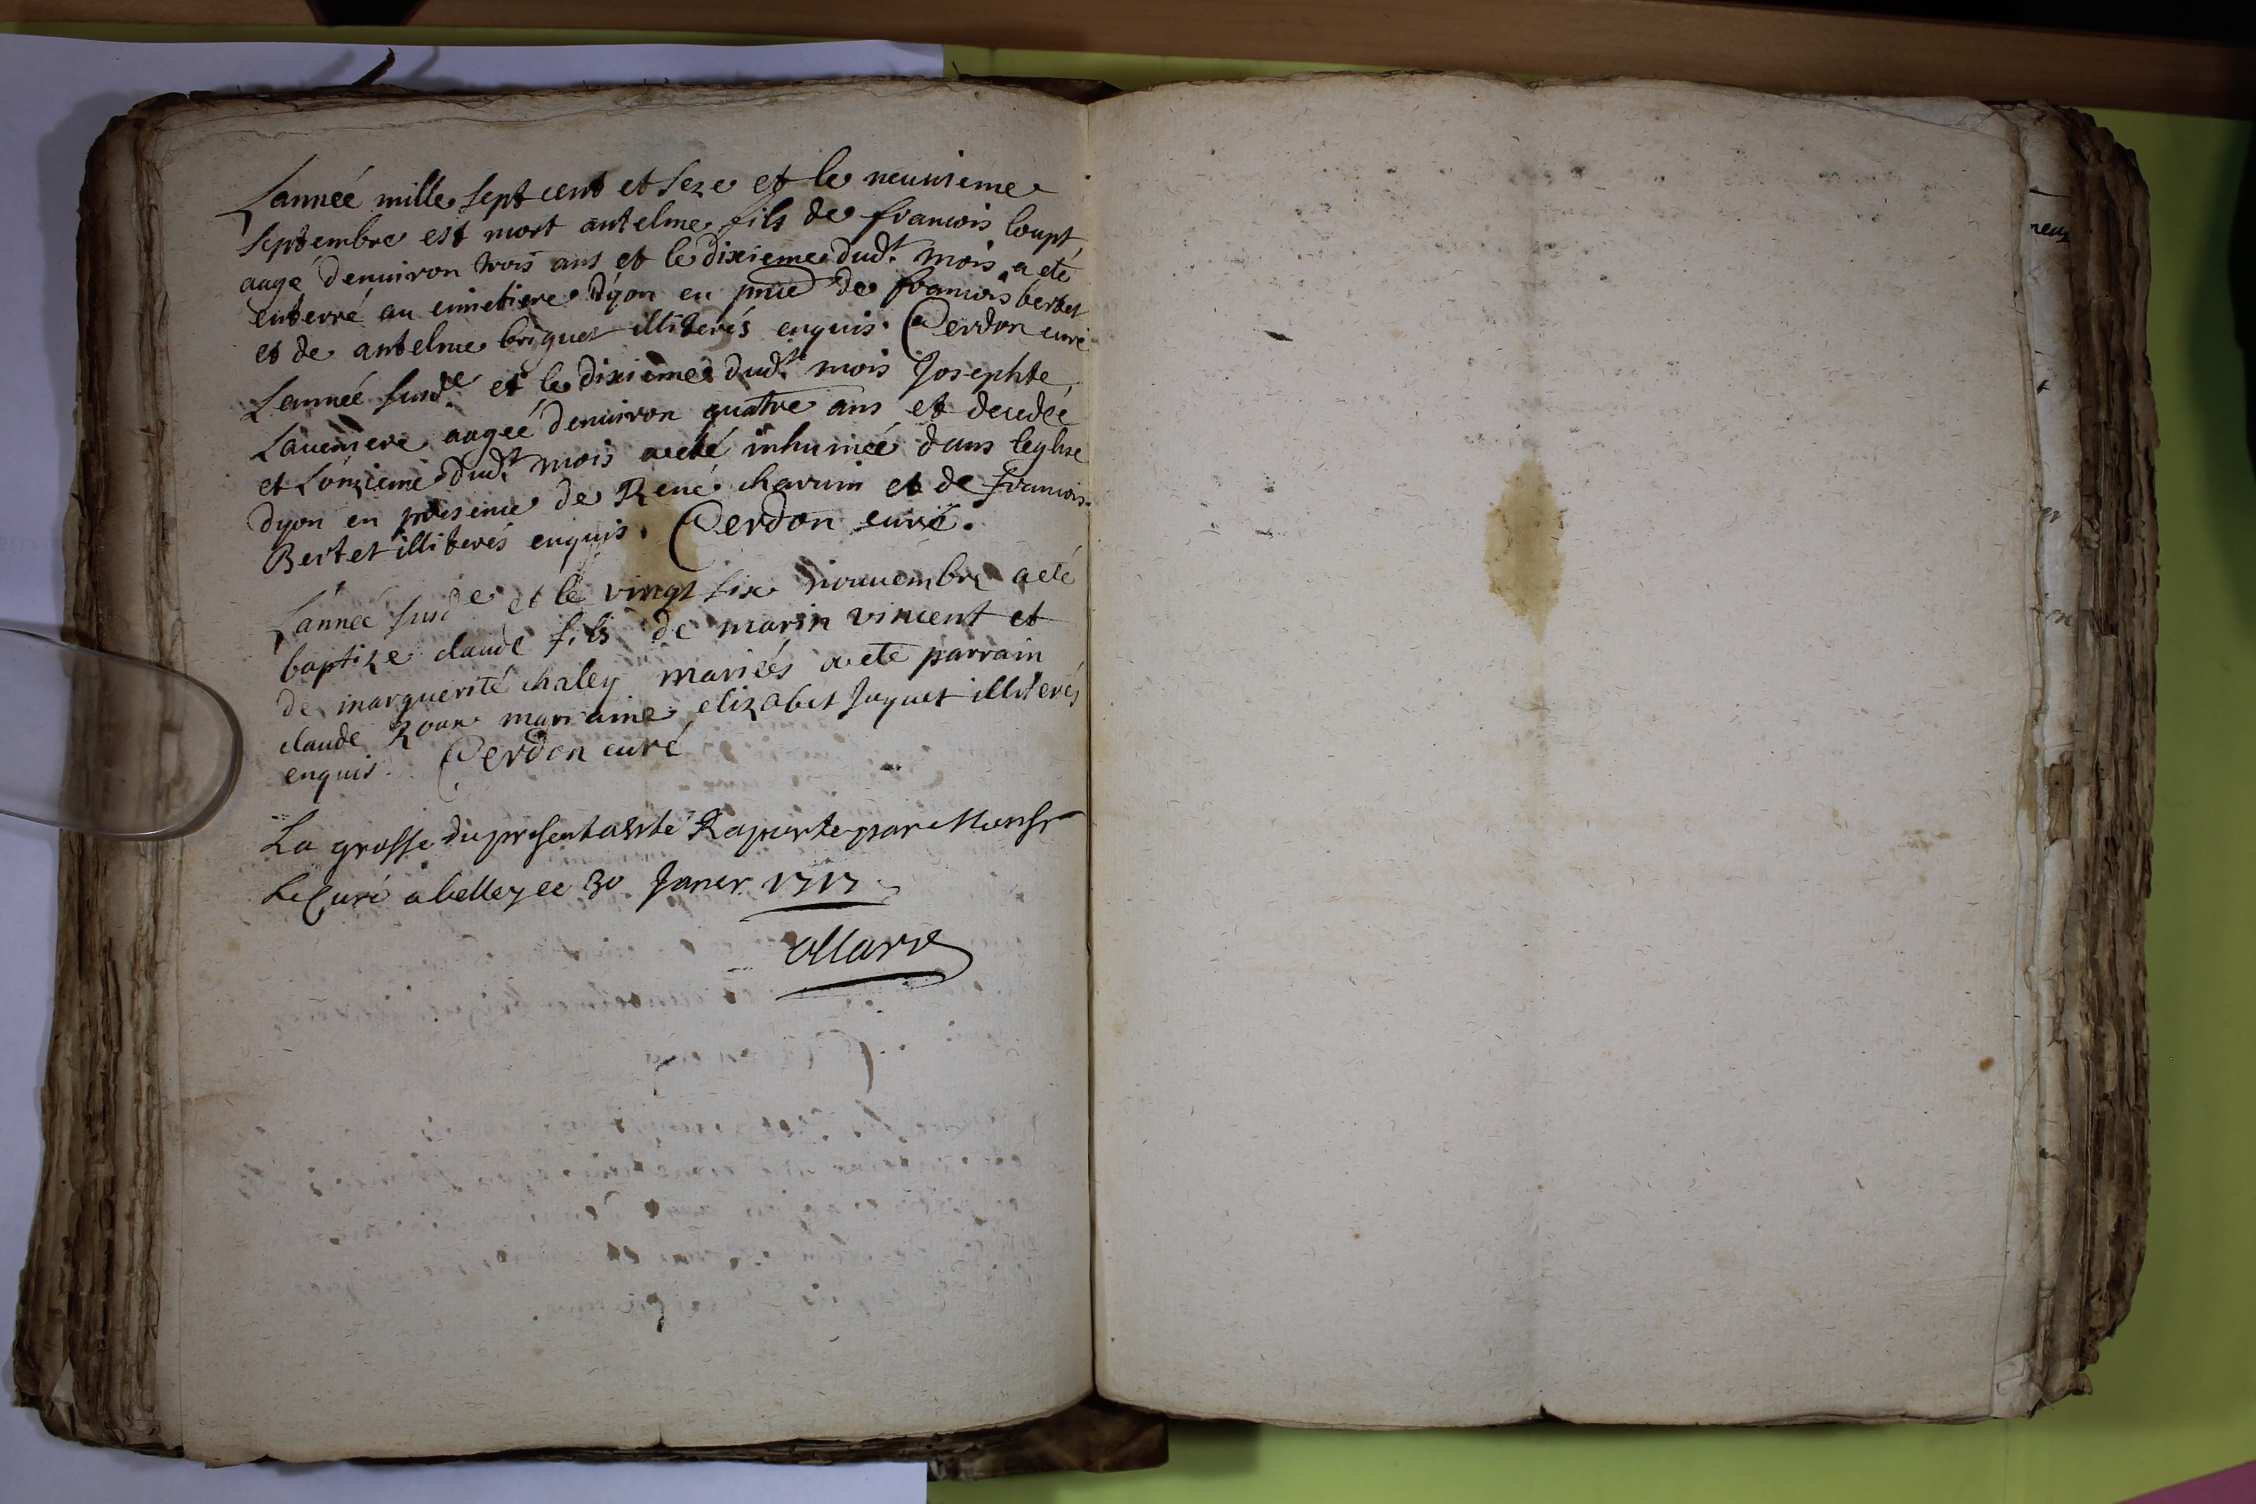 Lannéé mille sept cent et seze et le neuuieme
septembre est mort antelme fils de francois loupt
aagé denuiron trois ans et le dixieme dud.t mois a eté
enterré au cimetiere dyon en pnce de francois bertet
et de antelme briguet illiterés enquis. Cerdon curé
Lannéé susd.e et le dixieme dud.t mois Josephte
Lauerniere aagéé denuiron quatre ans et decedéé
et lónzieme dud.t mois a eté inhumeé dans leglise
dyon en presence de René charuin et de francois
Bertet illiterés enquis. Cerdon curé.
Lannéé susd.e et le vingt six nouuembre a eté
baptize claude fils de marin vincent et
de marguerite chaley mariés a eté parrain
claude Roux marraine elizabet Juguet illiterés
enquis. Cerdon curé
La grosse du present a esté Raporte par Monsr
Le Curé a belley ce 30 Janer 1717